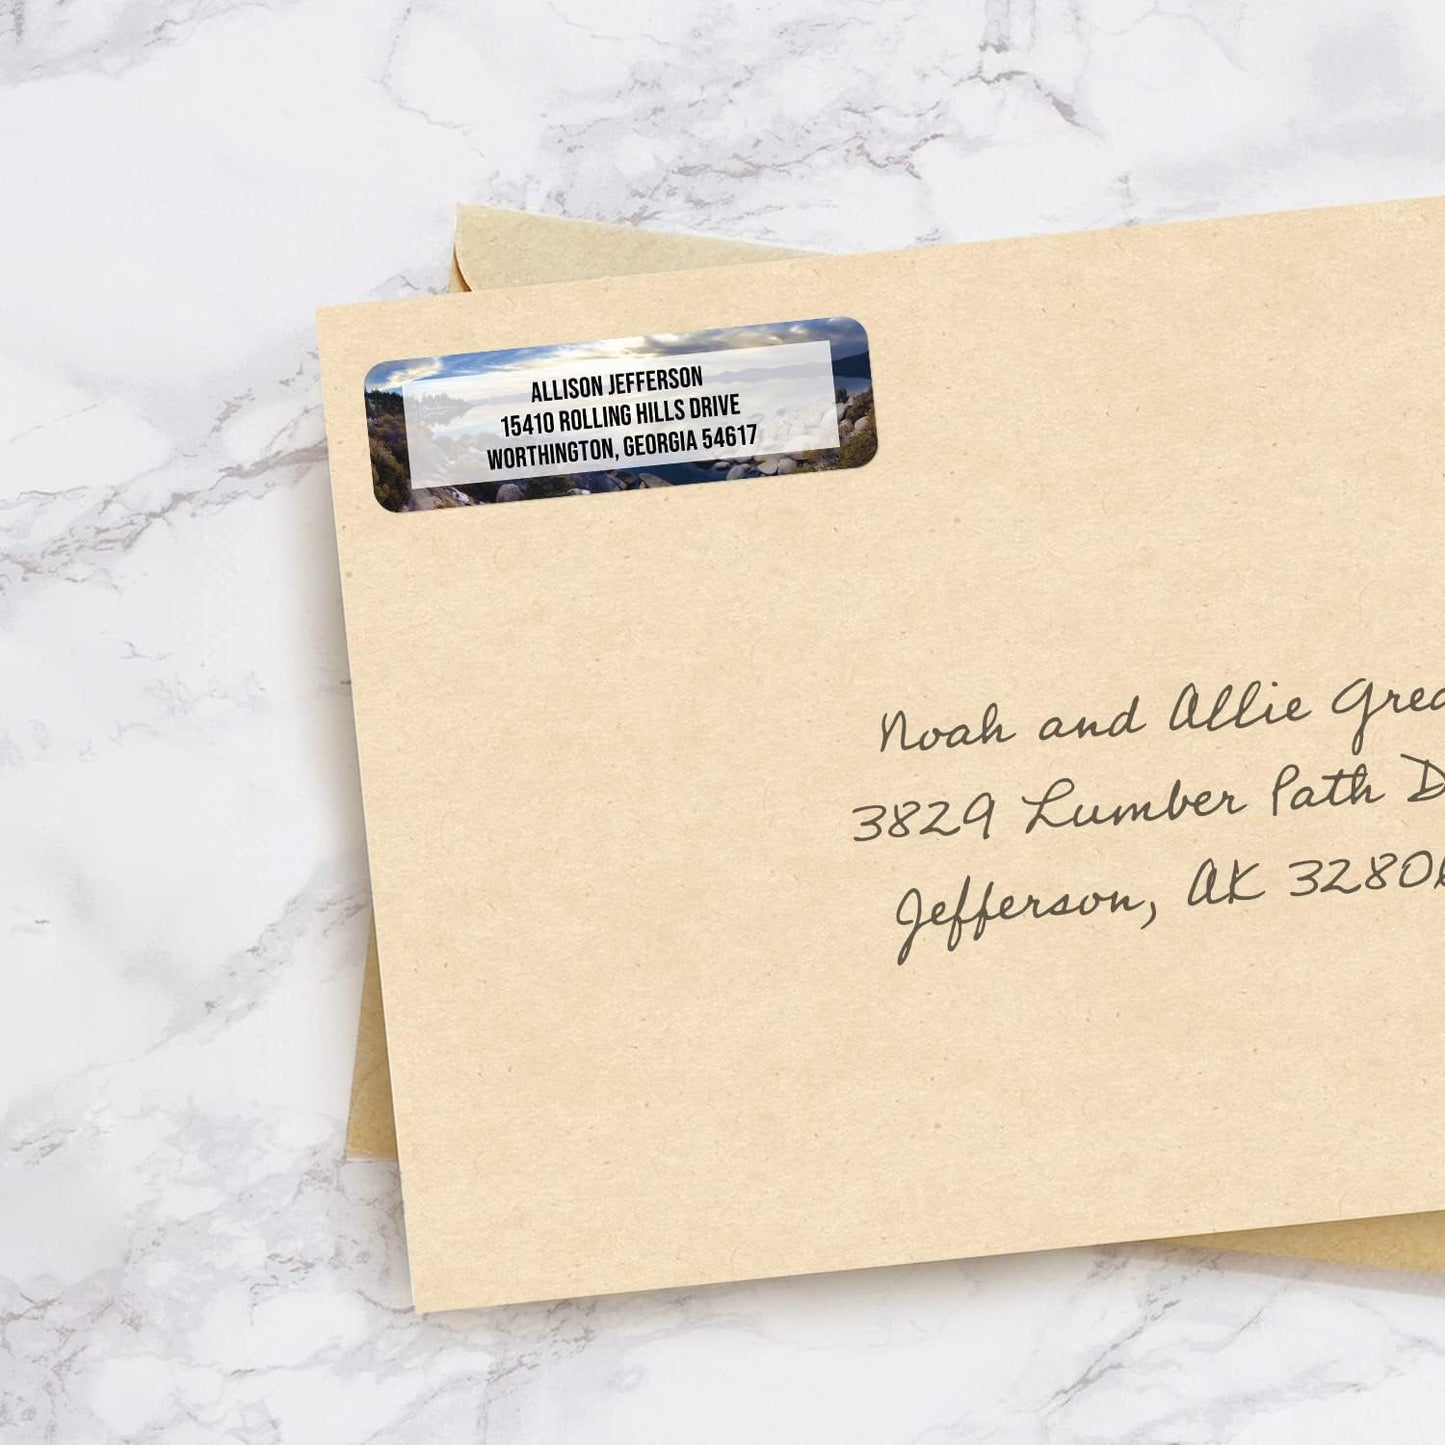 ALLISON JEFFERSON
15410 ROLLING HILLS DRIVE
WORTHINGTON, GEORGIA 54617
Noah and Allie
3829 Lumber Path
Jefferson, AK